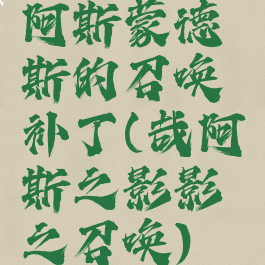 阿斯蒙德
斯的召唤
补丁(哉阿
斯之影影
之召唤)